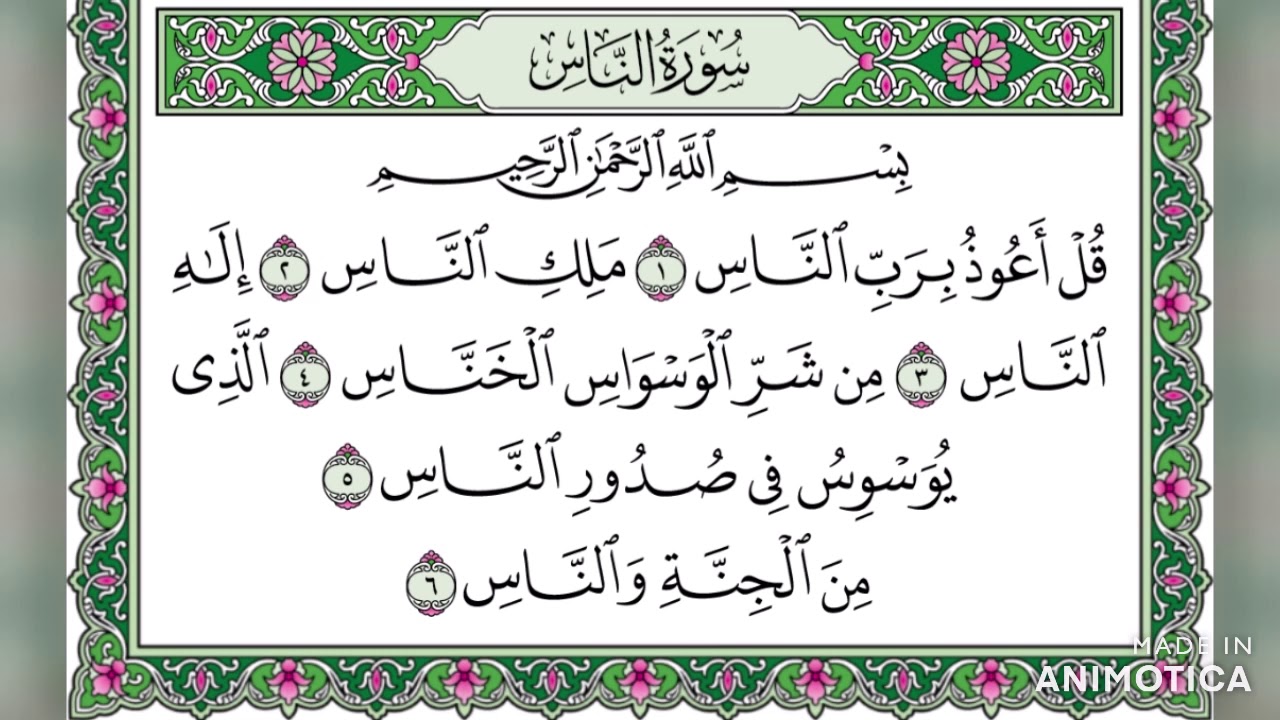 سُورَةُ النَّاسِ
بِسْمِ ٱللَّهِ ٱلرَّحْمَٰنِ ٱلرَّحِيمِ
قُلْ أَعُوذُ بِرَبِّ ٱلنَّاسِ ١ مَلِكِ ٱلنَّاسِ ٢ إِلَٰهِ
ٱلنَّاسِ ٣ مِن شَرِّ ٱلْوَسْوَاسِ ٱلْخَنَّاسِ ٤ ٱلَّذِى
يُوَسْوِسُ فِى صُدُورِ ٱلنَّاسِ ٥
مِنَ ٱلْجِنَّةِ وَٱلنَّاسِ ٦
MADE IN
ANIMOTICA